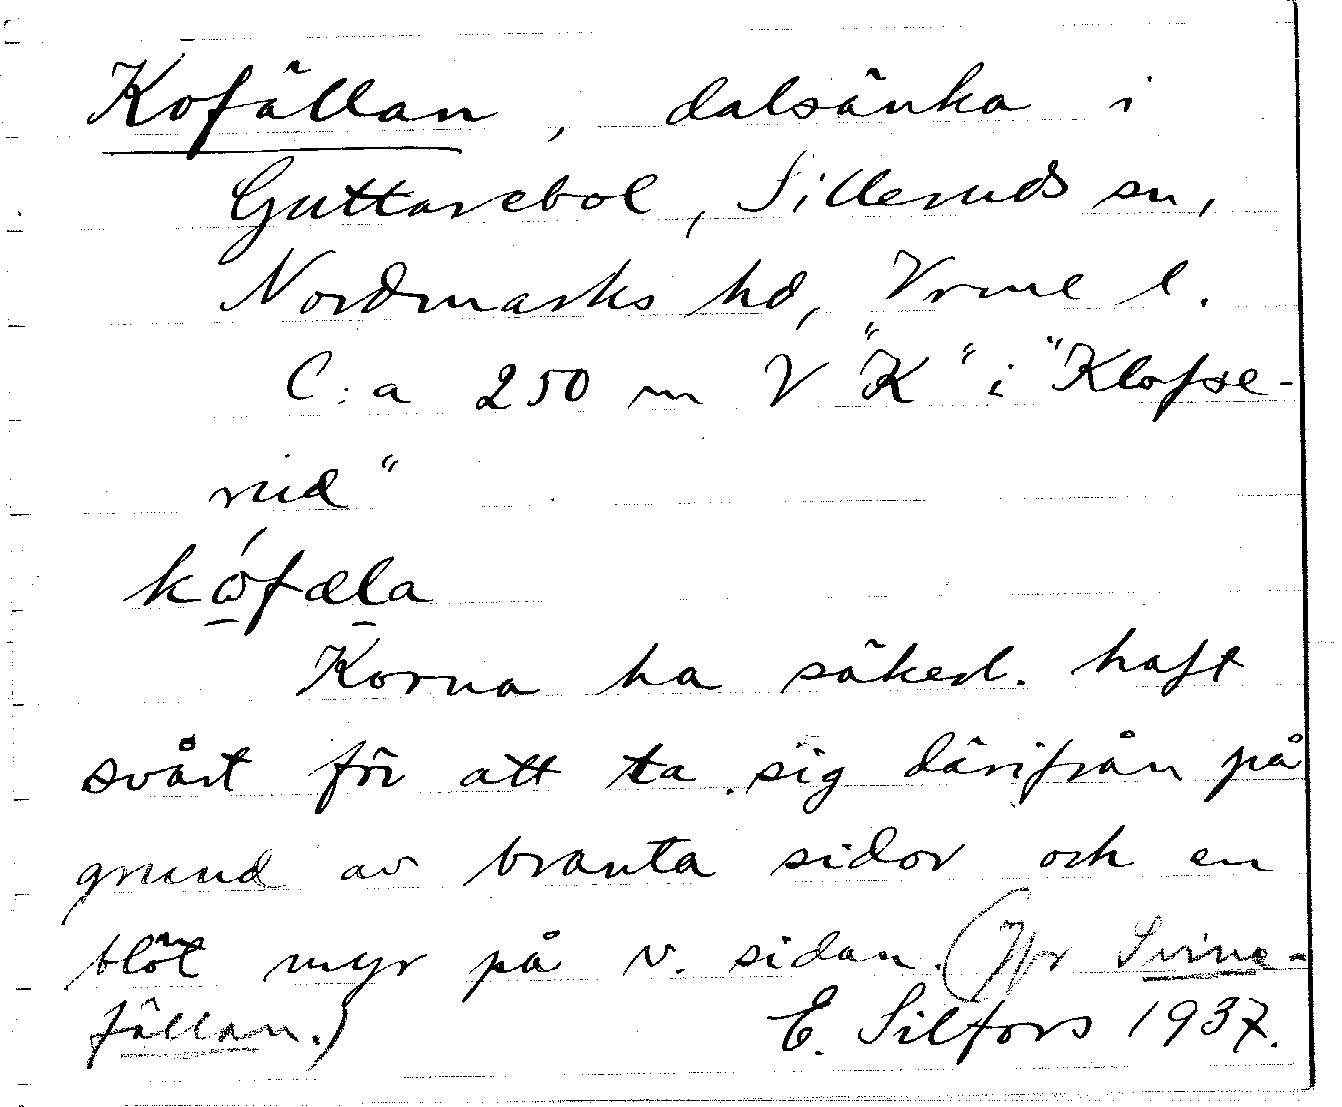 Kofällan, dalsänka i
Guttarebol, Silleruds sn,
Nordmarks hd, Vrml l.
C:a 250 m V "K" i "Klofse-
rud"
kófæla
Korna ha säkerl. haft
svårt för att ta sig därifrån på
grund av branta sidor och en
blöt myr på v. sidan. (Jfr Svine-
fällan.) E. Silfors 1937.